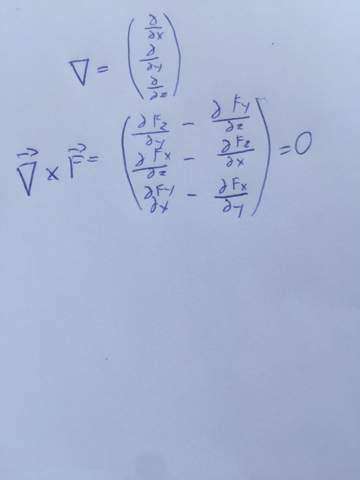 ∇ = (∂/∂x ∂/∂y ∂/∂z)
∇⃗ × F⃗ = (∂Fz/∂y − ∂Fy/∂z
∂Fx/∂z − ∂Fz/∂x
∂Fy/∂x − ∂Fx/∂y) = 0